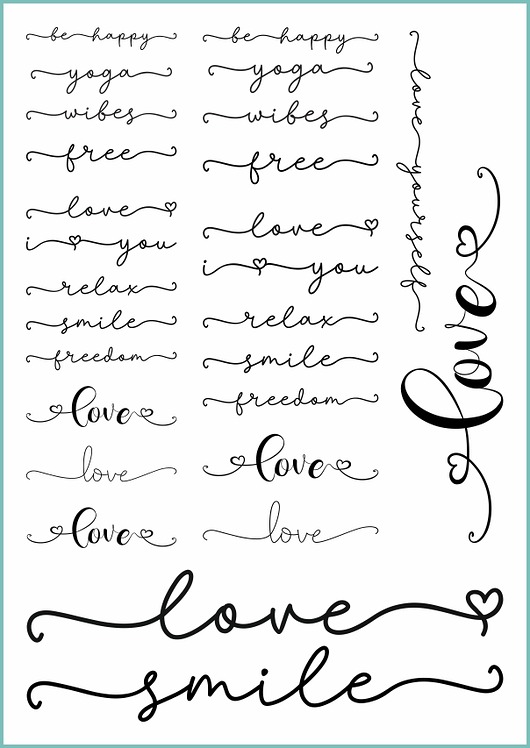 be happy
yoga
wibes
free
love
i you
relax
smile
freedom
love
love
love
be happy
yoga
wibes
free
love
i you
relax
smile
freedom
love
love
love yourself
love
love
smile